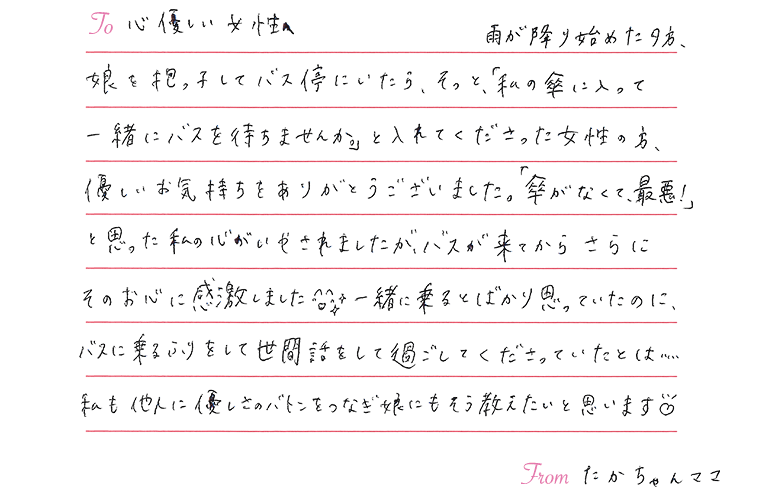 To 心優しい女性へ
雨が降り始めた夕方、
娘を抱っ子してバス停にいたら、そっと、「私の傘に入って
一緒にバスを待ちませんか?」と入れてくださった女性の方、
優しいお気持ちをありがとうございました。「傘がなくて、最悪!」
と思った私の心がいやされましたが、バスが来てからさらに
そのお心に感激しました 一緒に乗るとばかり思っていたのに、
バスに乗るふりをして世間話をして過ごしてくださっていたとは……
私も他人に優しさのバトンをつなぎ娘にもそう教えたいと思います
From たかちゃんママ